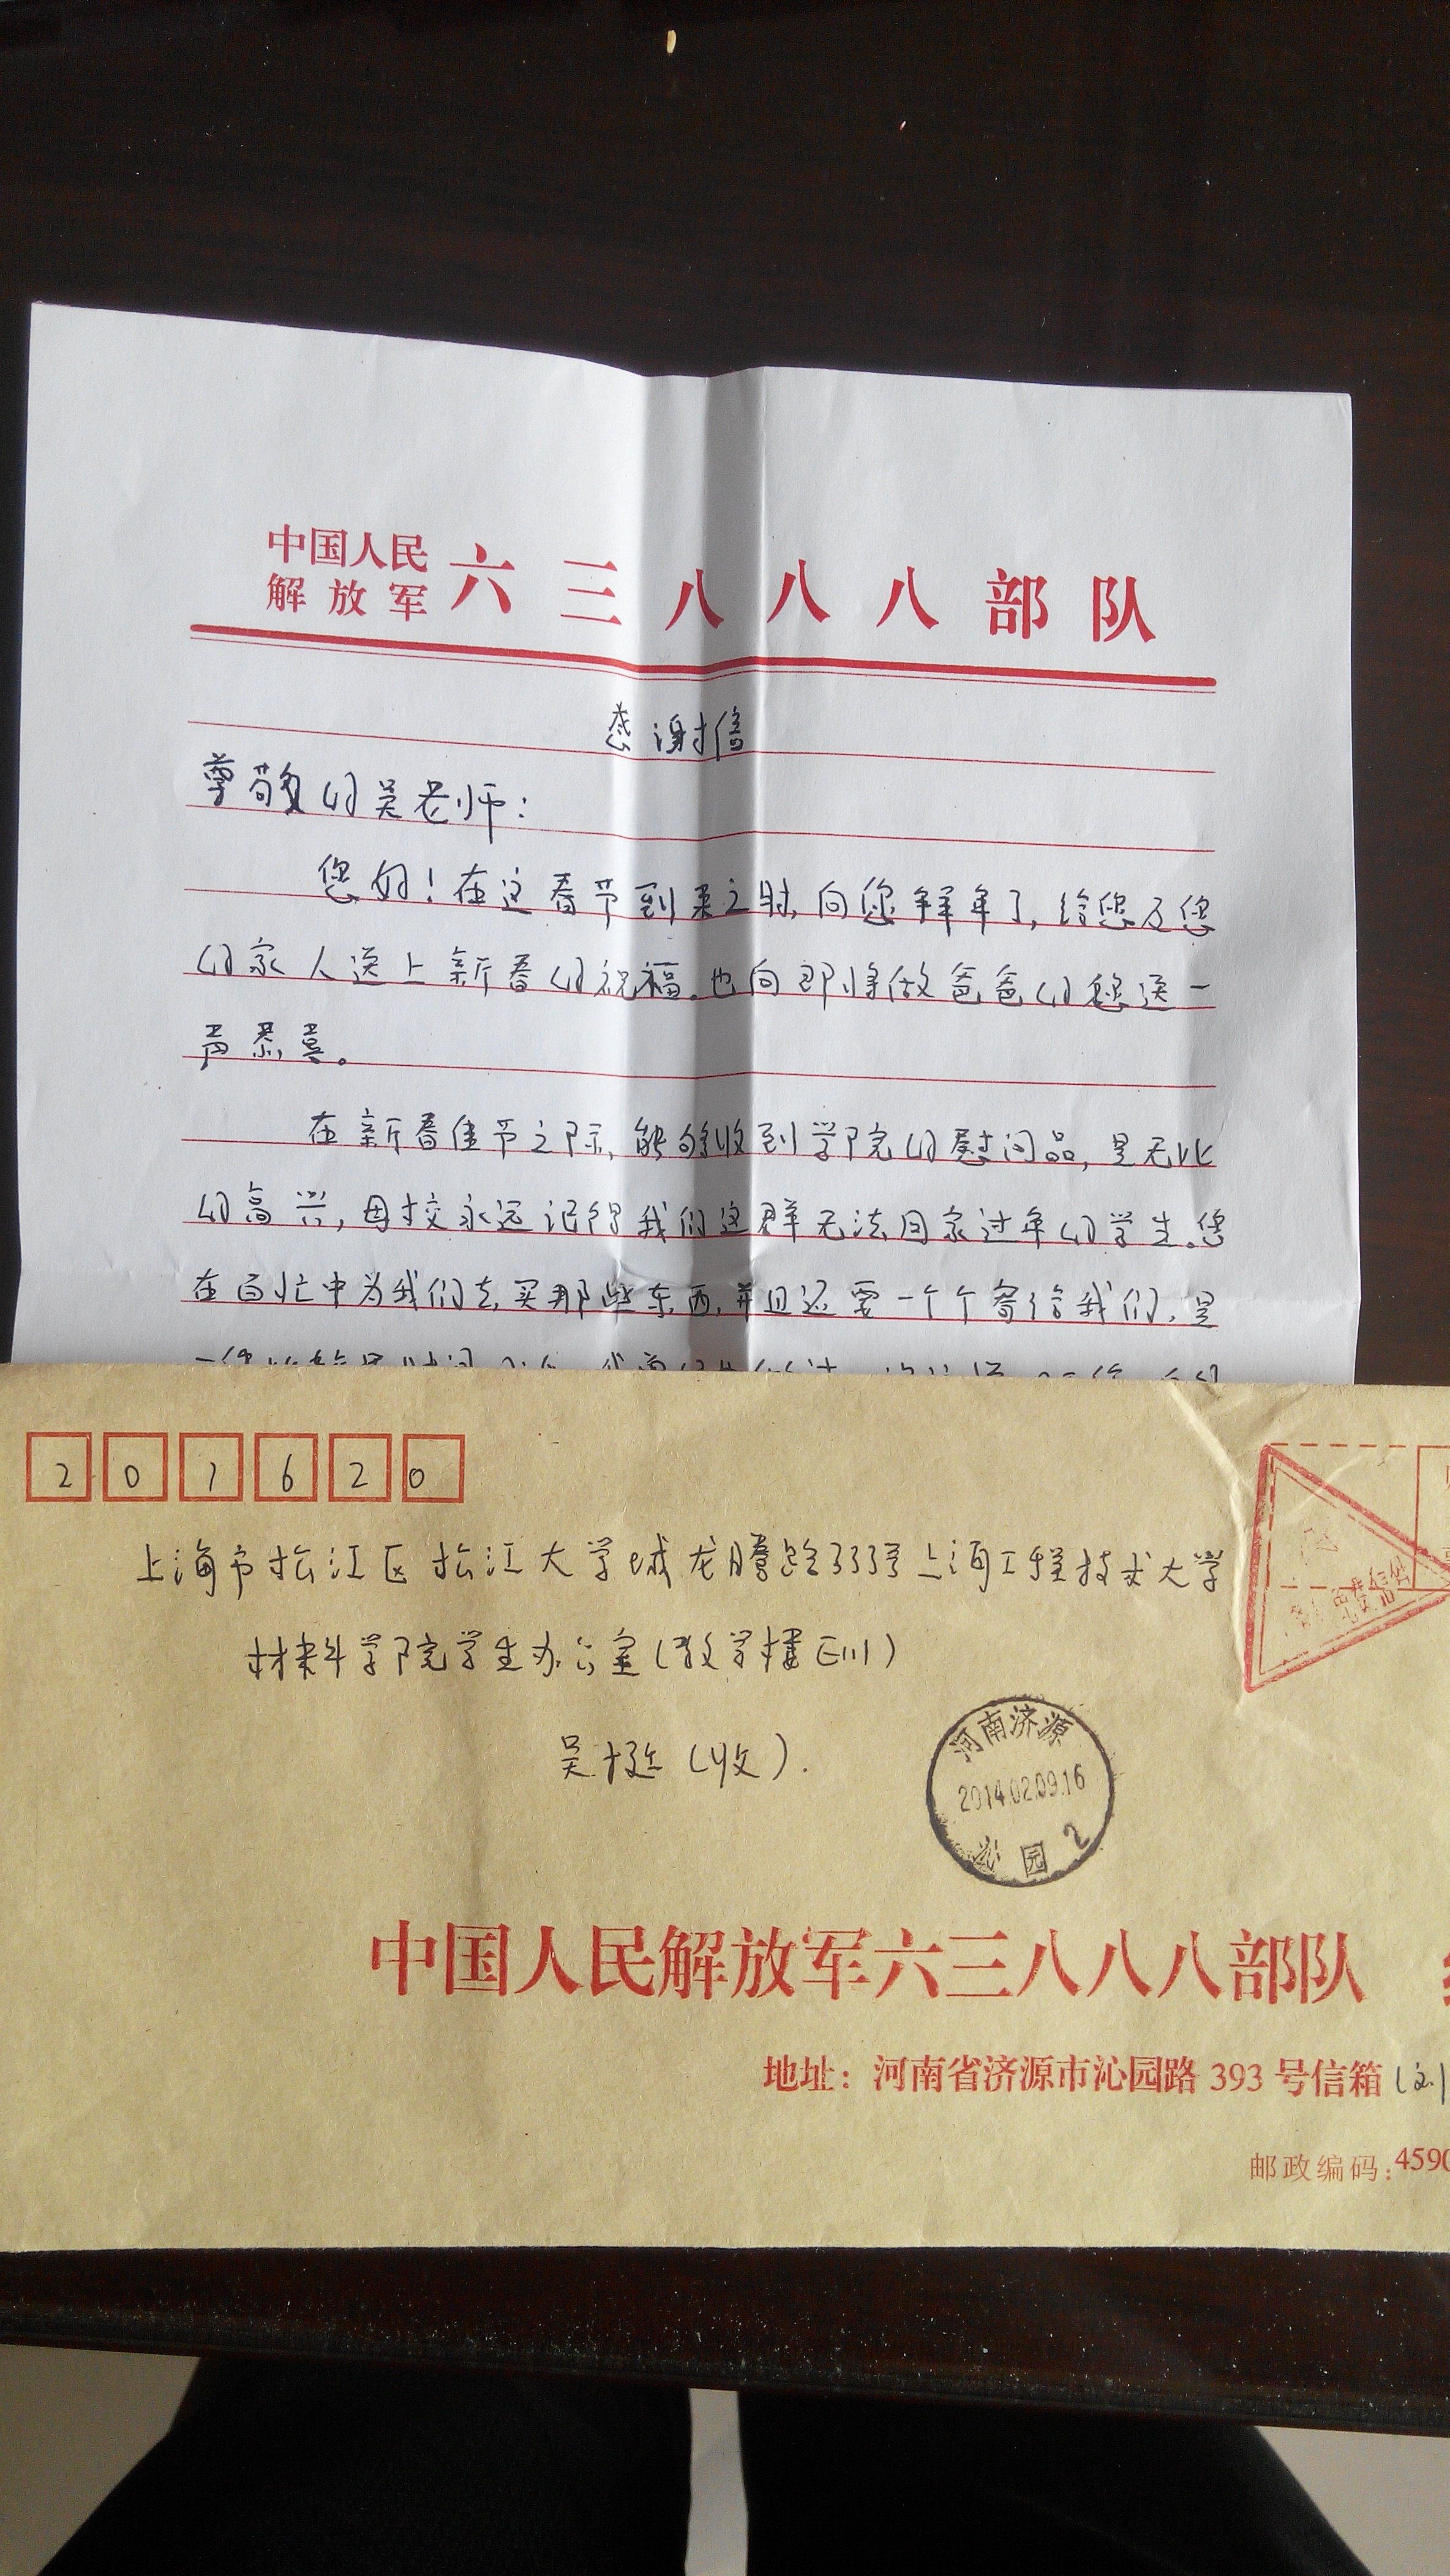 中国人民
解放军 六三八八八部队
感谢信
尊敬的吴老师:
您好!在这春节到来之时,向您拜年了,给您及您
的家人送上新春的祝福。也向即将做爸爸的您送一
声恭喜。
在新春佳节之际,能够收到学院的慰问品,是无比
的高兴,母校永远记得我们这群无法回家过年的学生。您
在百忙中为我们去买那些东西,并且还要一个个寄给我们,是
201620
上海市松江区松江大学城龙腾路333号上海工程技术大学
材料学院学生办公室(教学楼E111)
吴挺(收).
河南济源
2014.02.09.16
沁园 2
中国人民解放军六三八八八部队
地址：河南省济源市沁园路 393 号信箱
邮政编码:4590